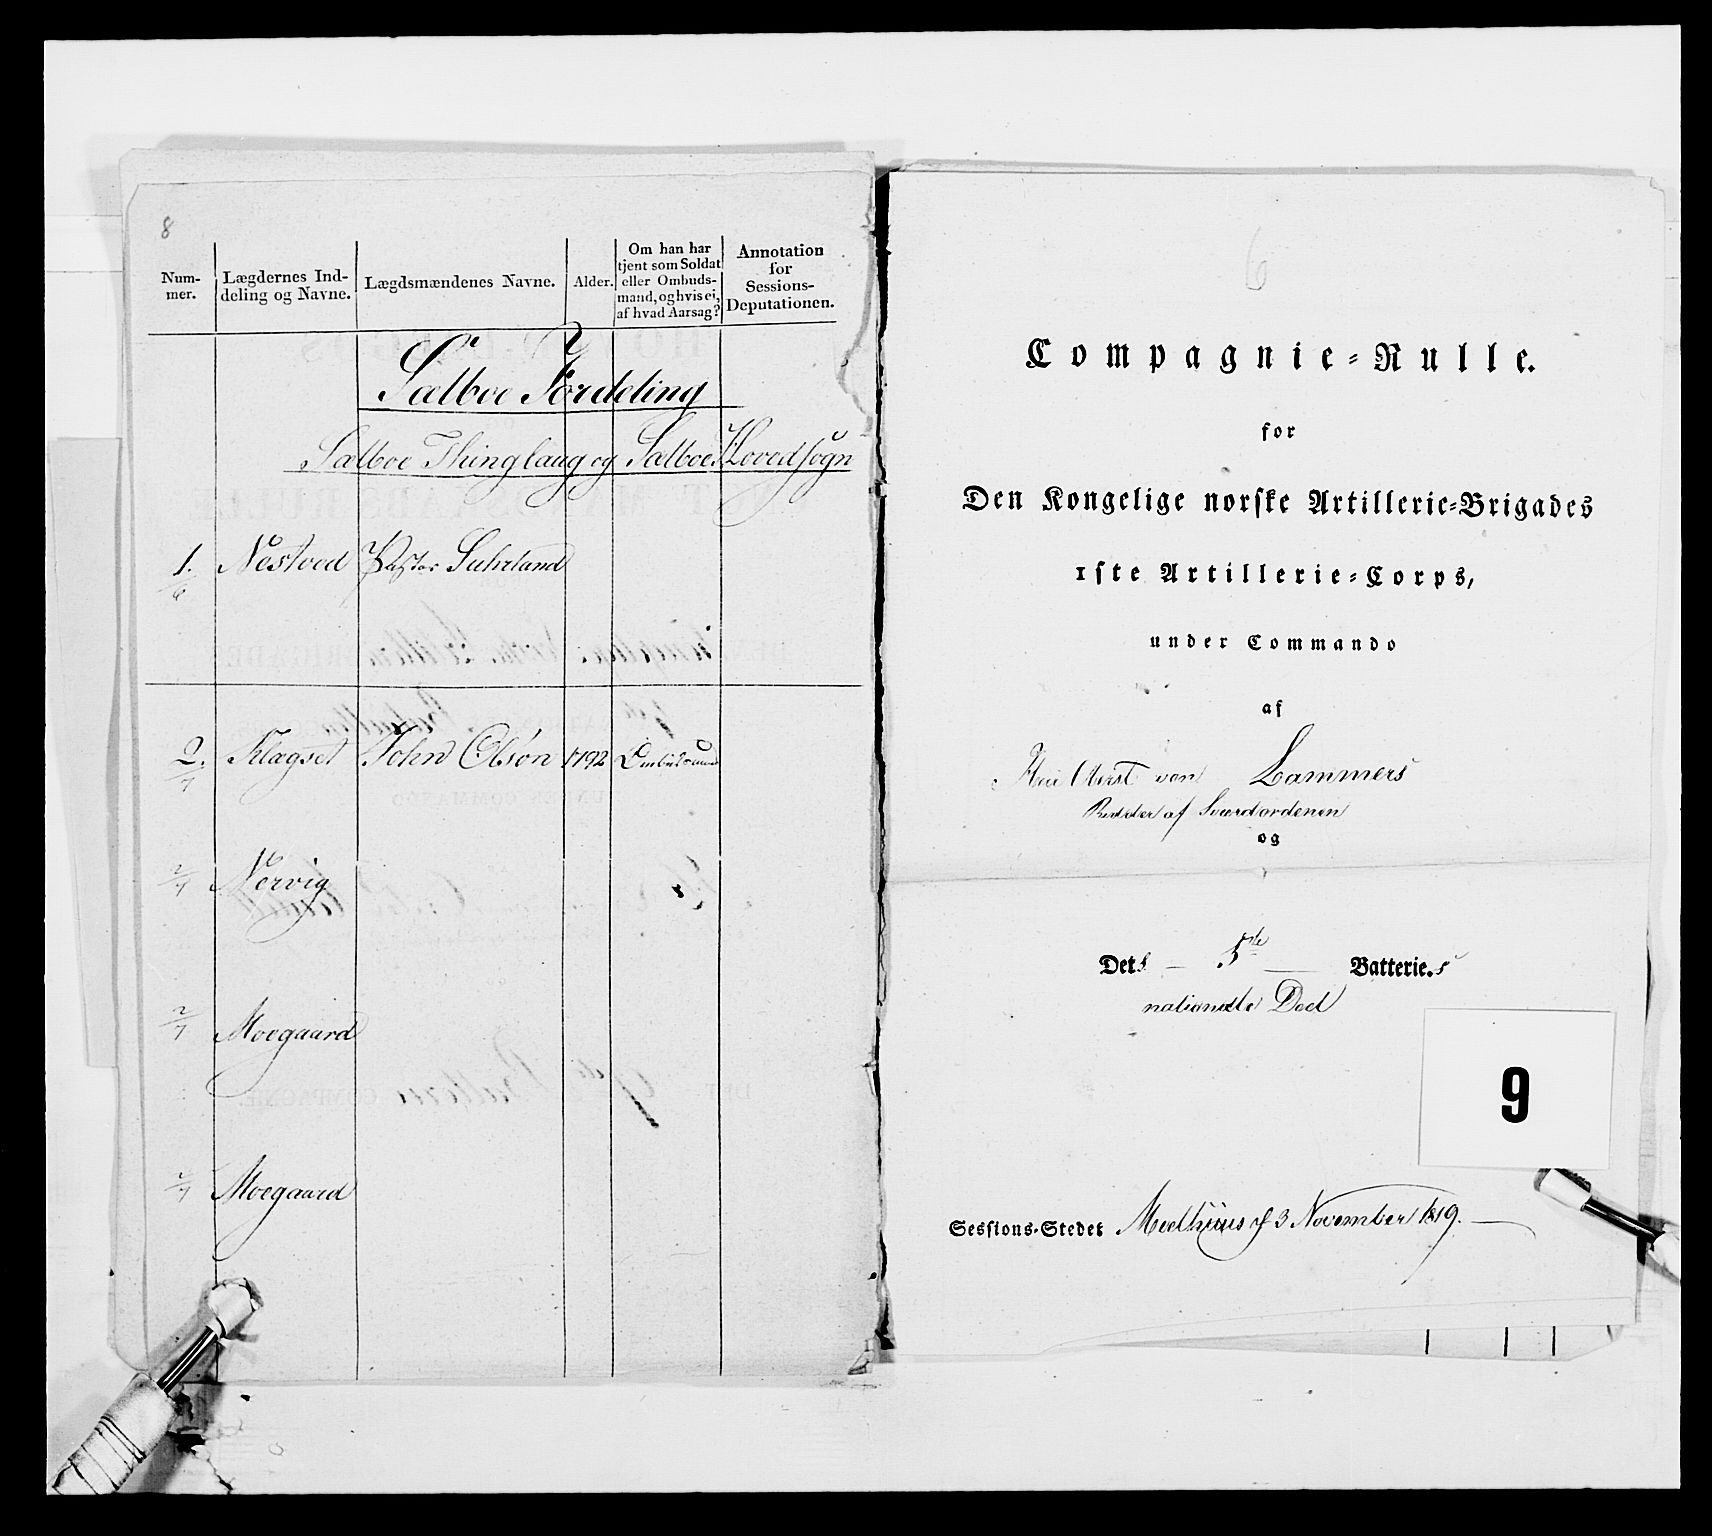 8
Num-
mer.
Lægdernes Ind-
deling og Navne.
Lægdsmændenes Navne.
Alder.
Om han har
tjent som Soldat
eller Ombuds-
mand, og hvis ei,
af hvad Aarsag?
Annotation
for
Sessions-
Deputationen.
Sælboe Fordeling
Sælboe Thinglaug og Sælboe Hovedsogn
1. Nestved Pastor Suhrland
/6
2. Klægset John Olsøn 1792 Ombudsmand
/7
2/7 Nervig
2/7 Moegaard
2/7 Moegaard
6
Compagnie-Rulle.
for
Den Kongelige norske Artillerie-Brigades
1ste Artillerie-Corps,
under Commando
af
Herr Oberst von Lammers
Ridder af Sværdordenen
og
Dets 5te Batterie.s
nationale Deel
9
Sessions-Stedet Meelhuus d 3 November 1819.